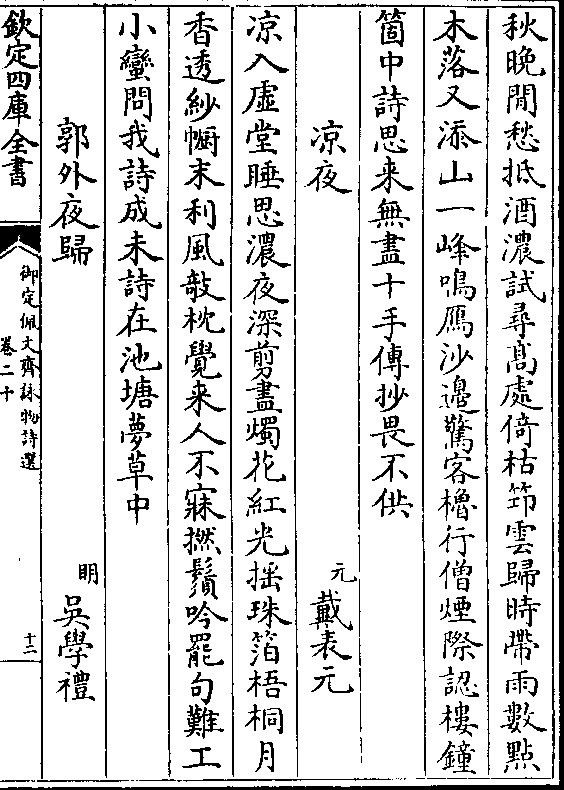 秋晚閒愁抵酒濃試尋髙處倚枯筇雲歸時帶雨數點
木落又添山一峰鳴鴈沙邊驚客櫓行僧煙際認樓鐘
箇中詩思来無盡十手傳抄畏不供
凉夜 元 戴表元
凉入虛堂睡思濃夜深剪盡燭花紅光摇珠箔梧桐月
香透紗㡡末利風敲枕覺来人不寐撚鬚吟罷句難工
小蠻問我詩成未詩在池塘夢草中
郭外夜歸 明 吳學禮
欽定四庫全書
御定佩文齋詠物詩選
卷二十
十二